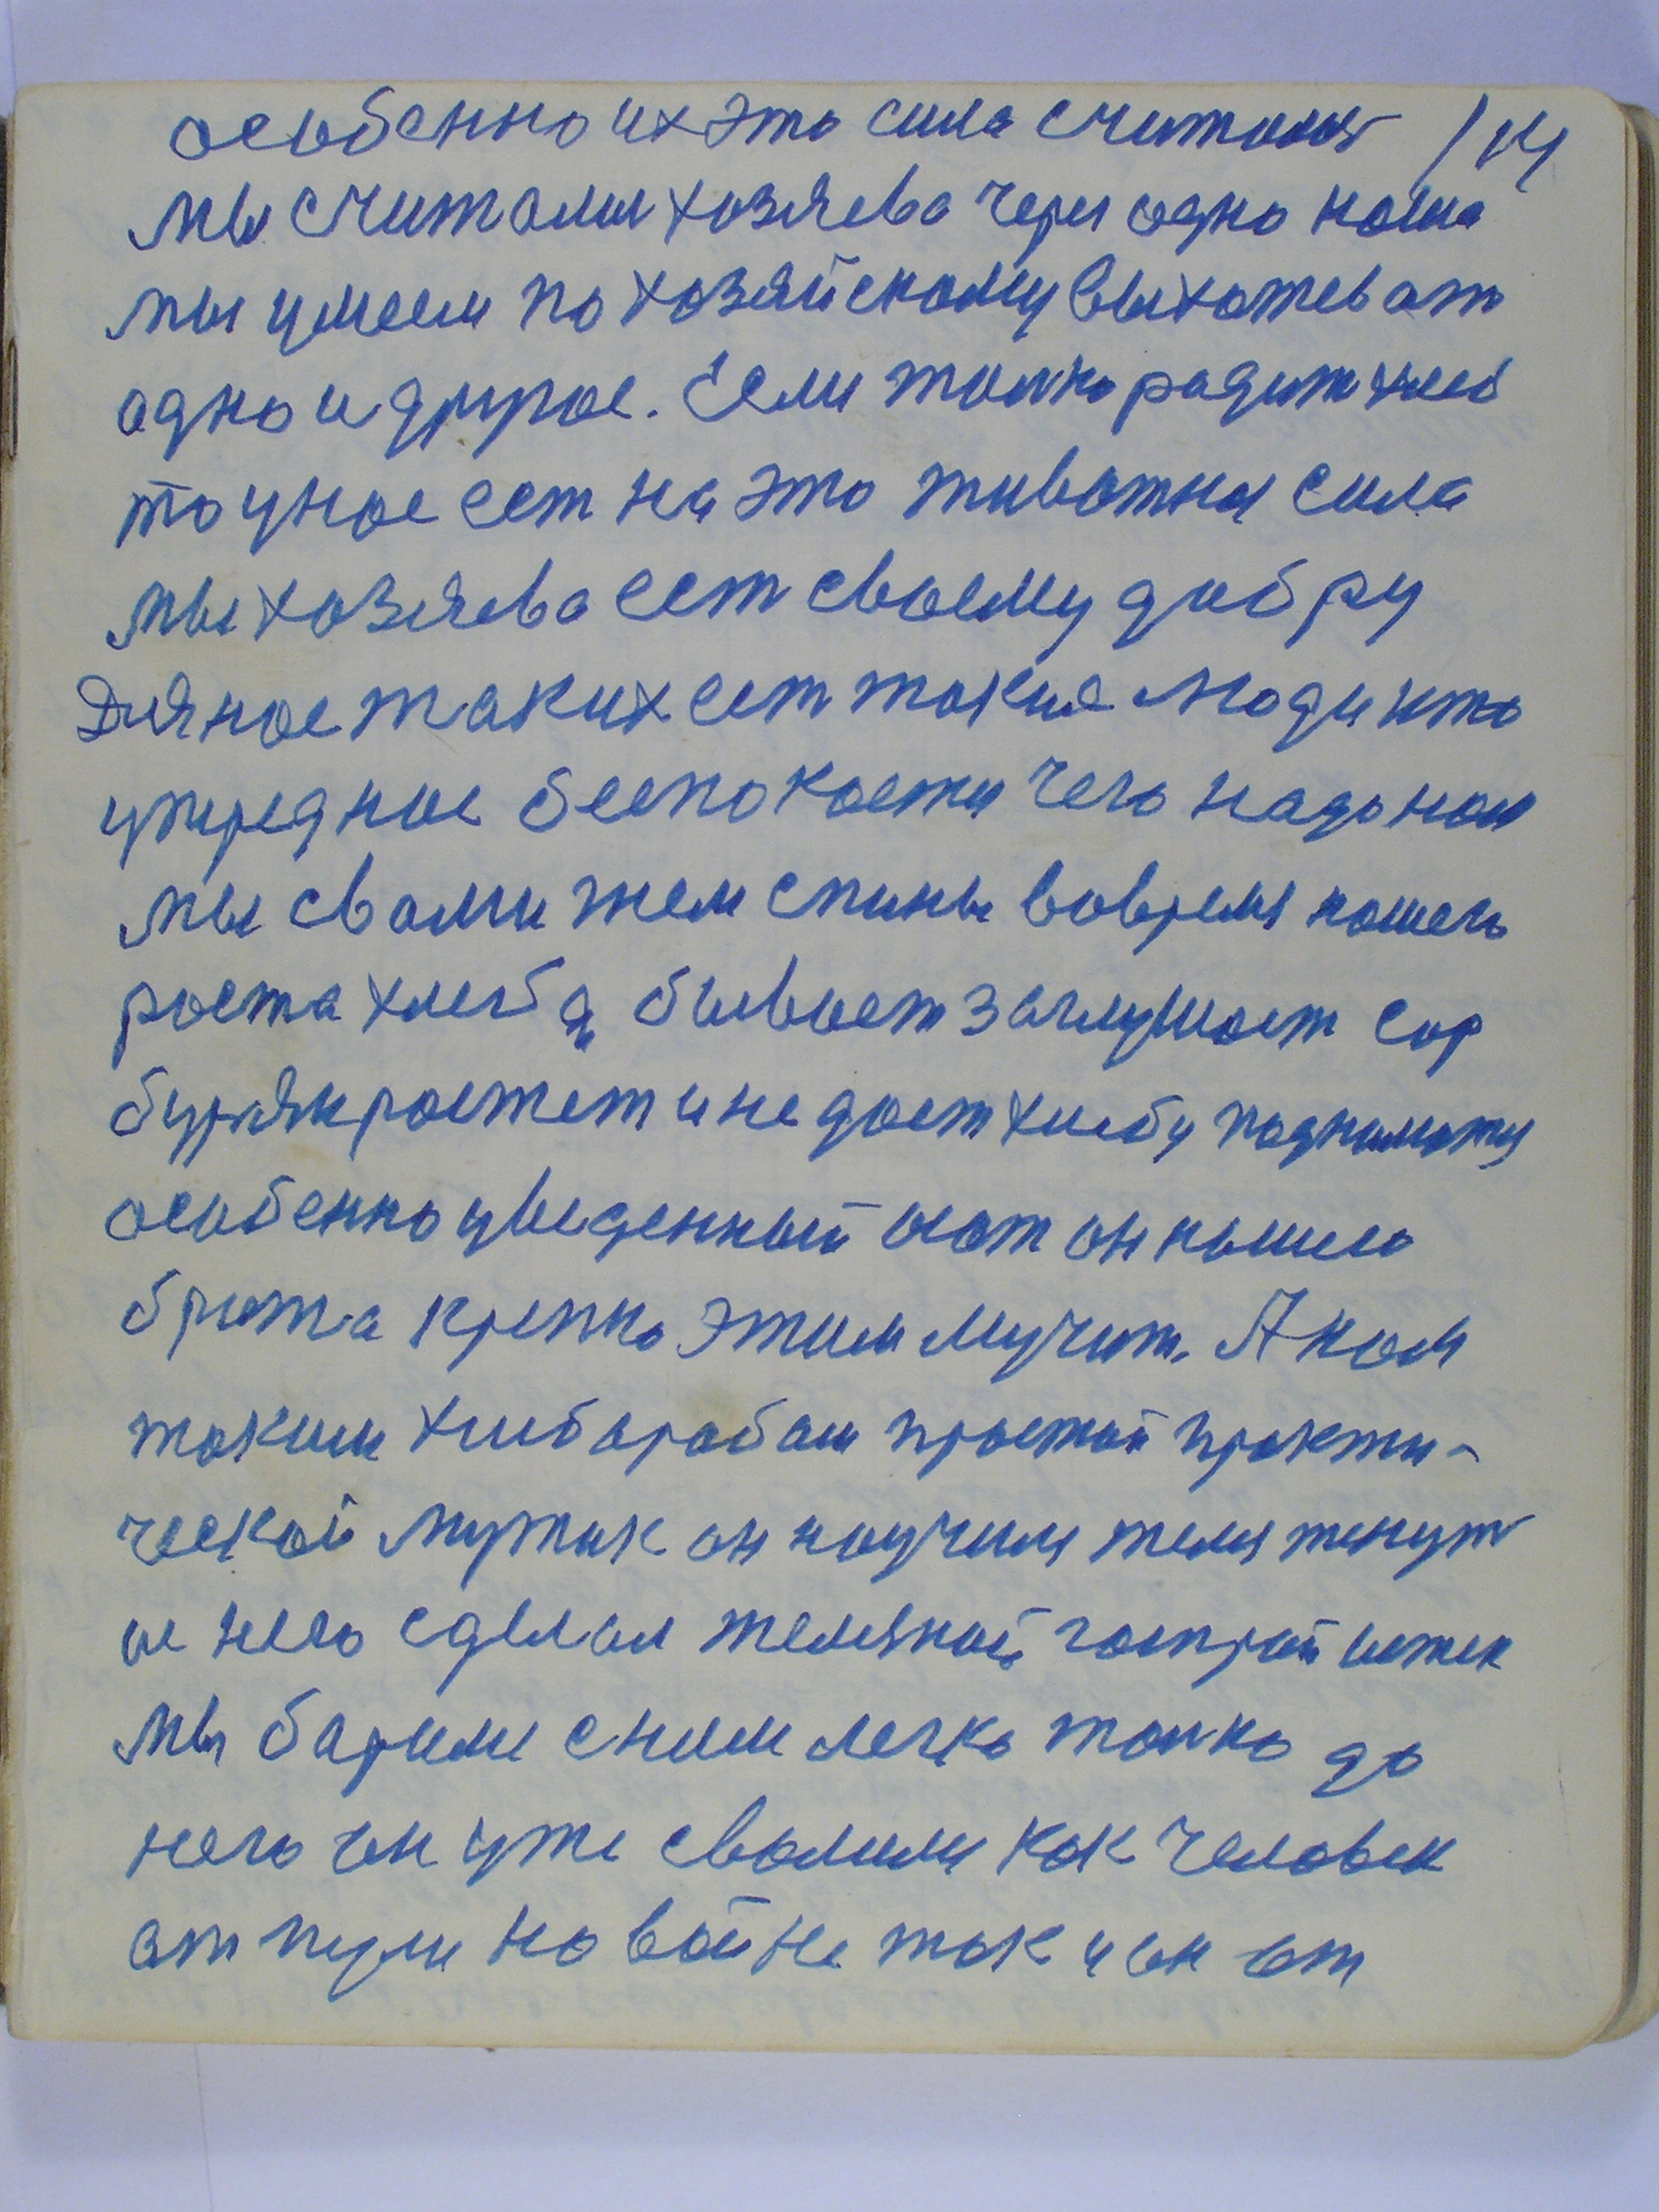 особенно их это сила считалися /14
мы считали хозяева через одно наша
мы умеем по хозяйскому выхажевать
одно и другое. Если толко радит хлеб
то у нас ест на это животная сила
мы хозяева ест своему добру
Для нас таких ест такие люди кто
упиред нас беспокоется чего надо нам
мы с вами жем спины вовремя нашего
роста хлеба, бывает заглушает сор
бурян растет и не дает хлебу подниматся
особенно осот он нашего
брата крепко этим мучит. А нам
таким хлибарабам простой практи-
ческой мужик он научил
с него сделал
мы барими с ним легко толко до
него он уже свалили как человек
от пули на войне так и он от